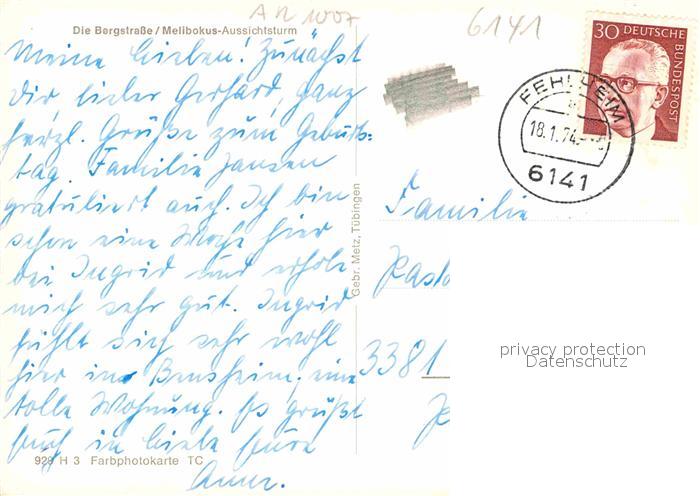 AR 1007
6141
Die Bergstraße / Melibokus-Aussichtsturm
Meine Lieben! Zunächst
Dir lieber Gerhard, ganz
herzl. Grüße zum Geburts-
tag. Familie Jansen
gratuliert auch. Ich bin
schon eine Woche hier
bei Ingrid und erhole
mich sehr gut. Ingrid
fühlt sich sehr wohl
hier in Bensheim, eine
tolle Wohnung. Es grüßt
Euch in Liebe Eure
Anne.
928 H 3 Farbphotokarte TC
Gebr. Metz, Tübingen
30 DEUTSCHE BUNDESPOST
FEHLHEIM
18.1.74
6141
Familie
Pasto
3381
privacy protection
Datenschutz